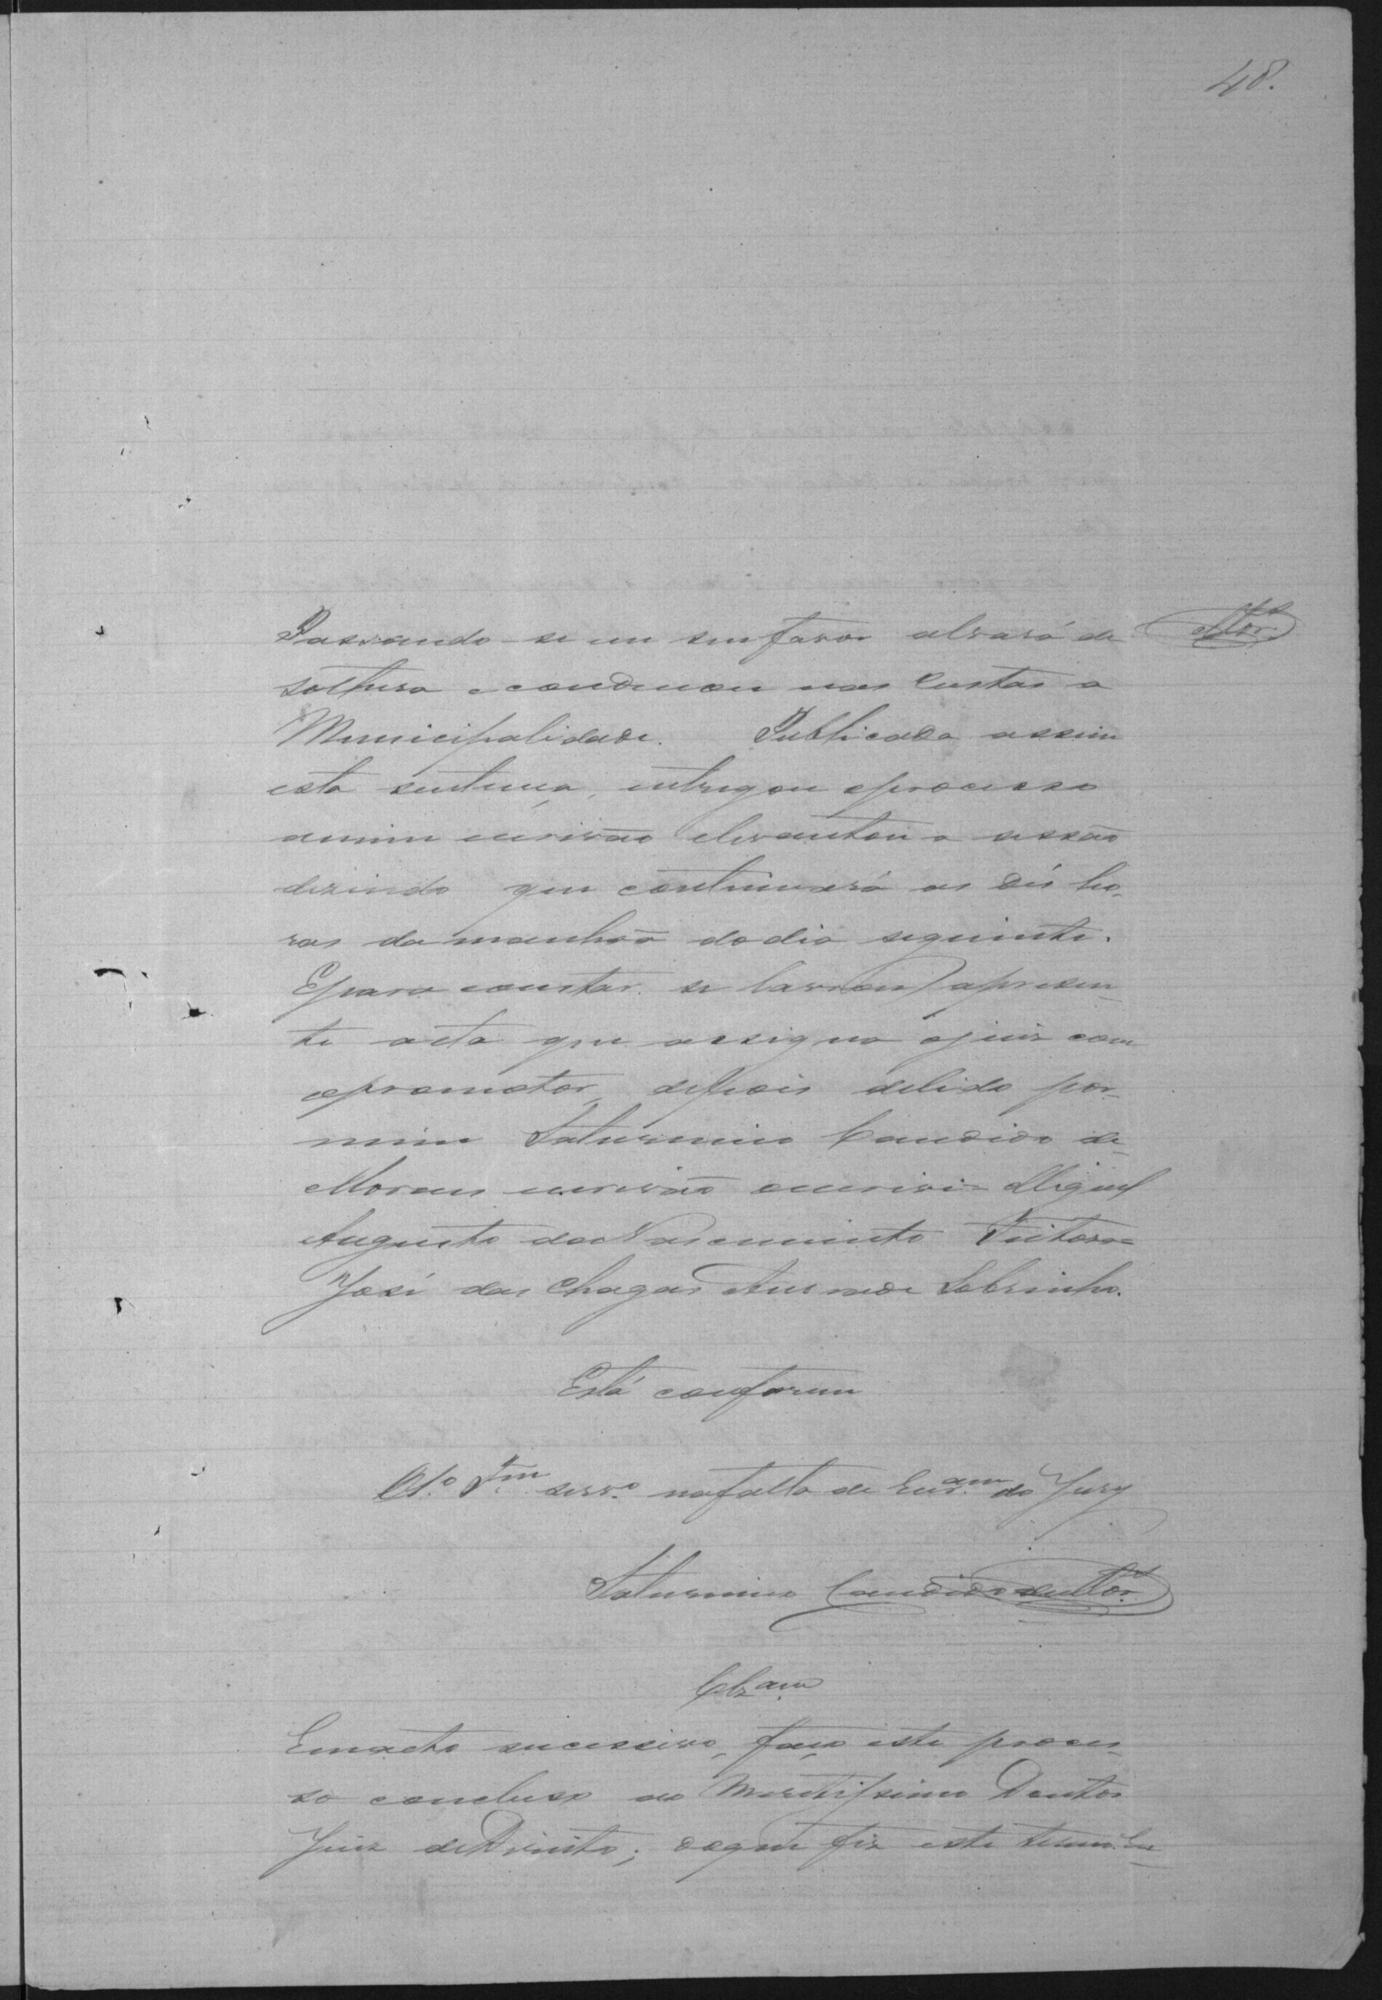 48.
Passando se em seu favor alvará de
soltura e condenou nas Custas a
Municipalidade. Publicada assim
esta sentença, entregou o processo
amim escrivão elevantou a sessão
dizindo que continuará as dés ho-
ras da manhã dodia seguinte.
Epara constar se lavrou apresen-
te acta que assigna ojuiz com
opromotor, depois delida por
mim Saturnino Candido de
Moraes escrivão oescrivi= Miguel
Augusto do Nascimento Feitosa=
José das Chagas Andrade Sobrinho.
Está conforme
O 1.º T.m serv.º nafalta de Escr.am do Jury
Saturnino Candido de Mor.s
Clz.am
Emacto sucessivo, faço este proces-
so concluso ao Meritissimo Doutor
Juiz deDireito; doque fiz este termo. Eu